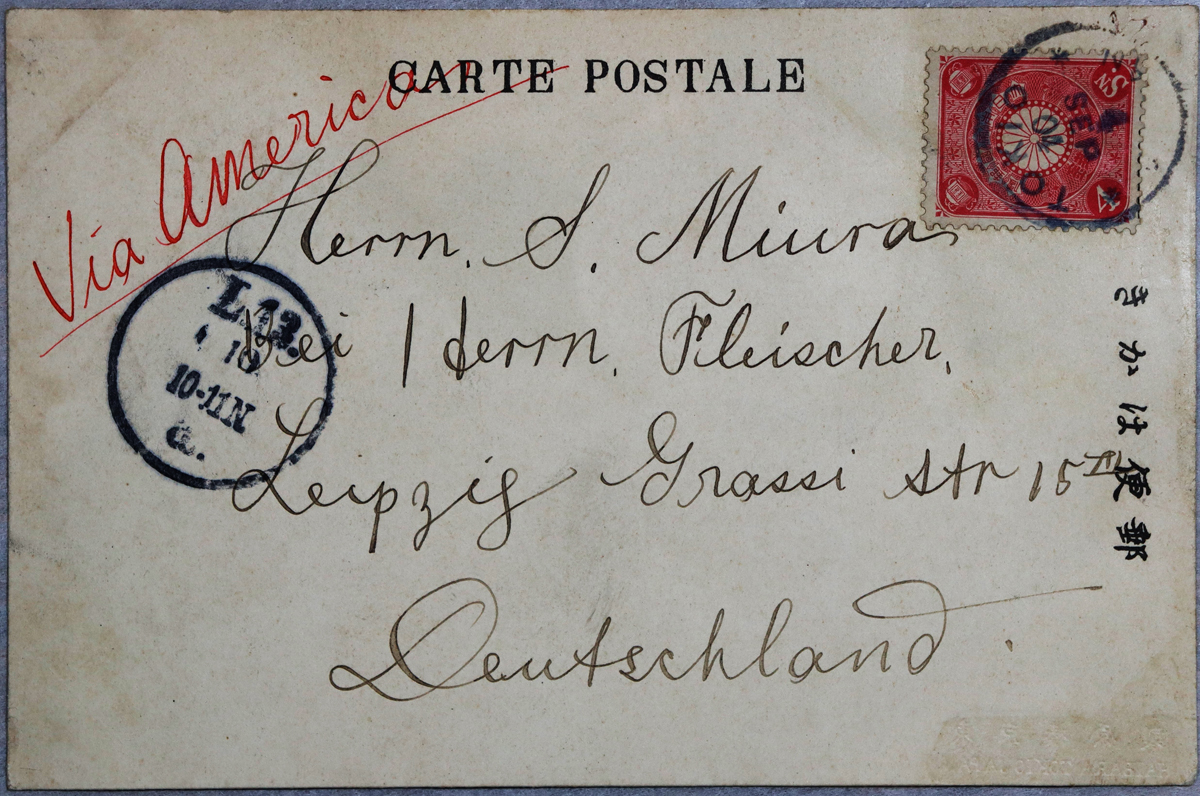 CARTE POSTALE
Via America
Herrn. S. Miura
Bei Herrn. Fleischer.
Leipzig Grassi str 15
Deutschland.
郵便はかき
L.13.
10
10-11N
a.
4 Sn.
TOKIO
SEP